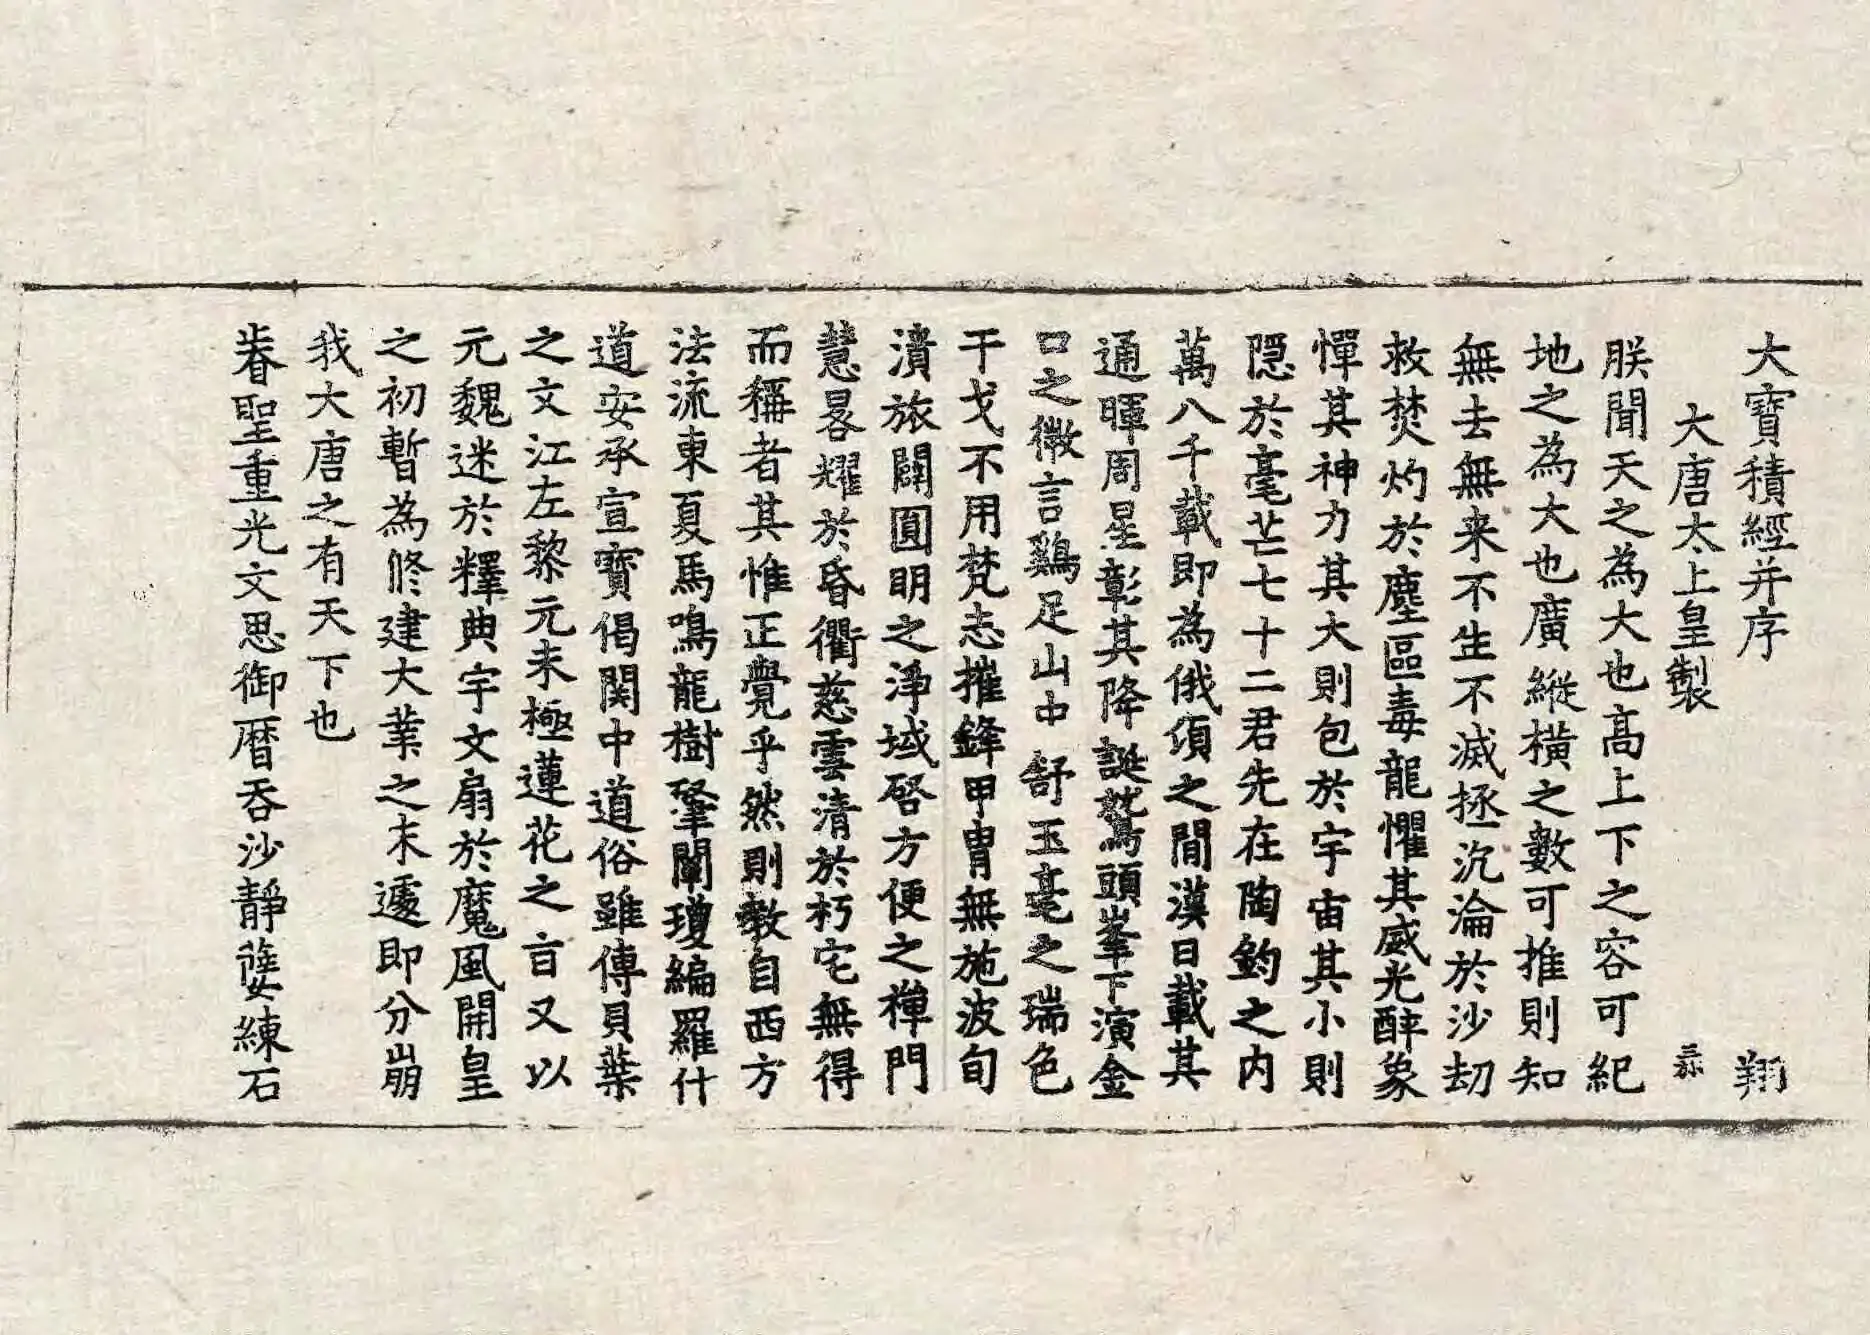 大寶積經并序 翔
大唐太上皇製
朕聞天之為大也高上下之容可紀
地之為大也廣縱橫之數可推則知
無去無来不生不滅拯沉淪於沙刼
救焚灼於塵區毒龍懼其威光醉象
憚其神力其大則包於宇宙其小則
隠於毫芒七十二君先在陶鈞之內
萬八千載即為俄頃之間漢日載其
通暉周星彰其降誕鷲頭峯下演金
口之微言鷄足山中舒玉毫之瑞色
干戈不用梵志摧鋒甲冑無施波旬
潰旅闢圓明之淨域啓方便之禪門
慧晷耀於昏衢慈雲清於朽宅無得
而稱者其惟正覺乎然則教自西方
法流東夏馬鳴龍樹肇闡瓊編羅什
道安承宣寶偈関中道俗雖傳貝葉
之文江左黎元未極蓮花之旨又以
元魏迷於釋典宇文扇於魔風開皇
之初暫為修建大業之末遽即分崩
我大唐之有天下也
聖重光文思御曆吞沙靜孽練石